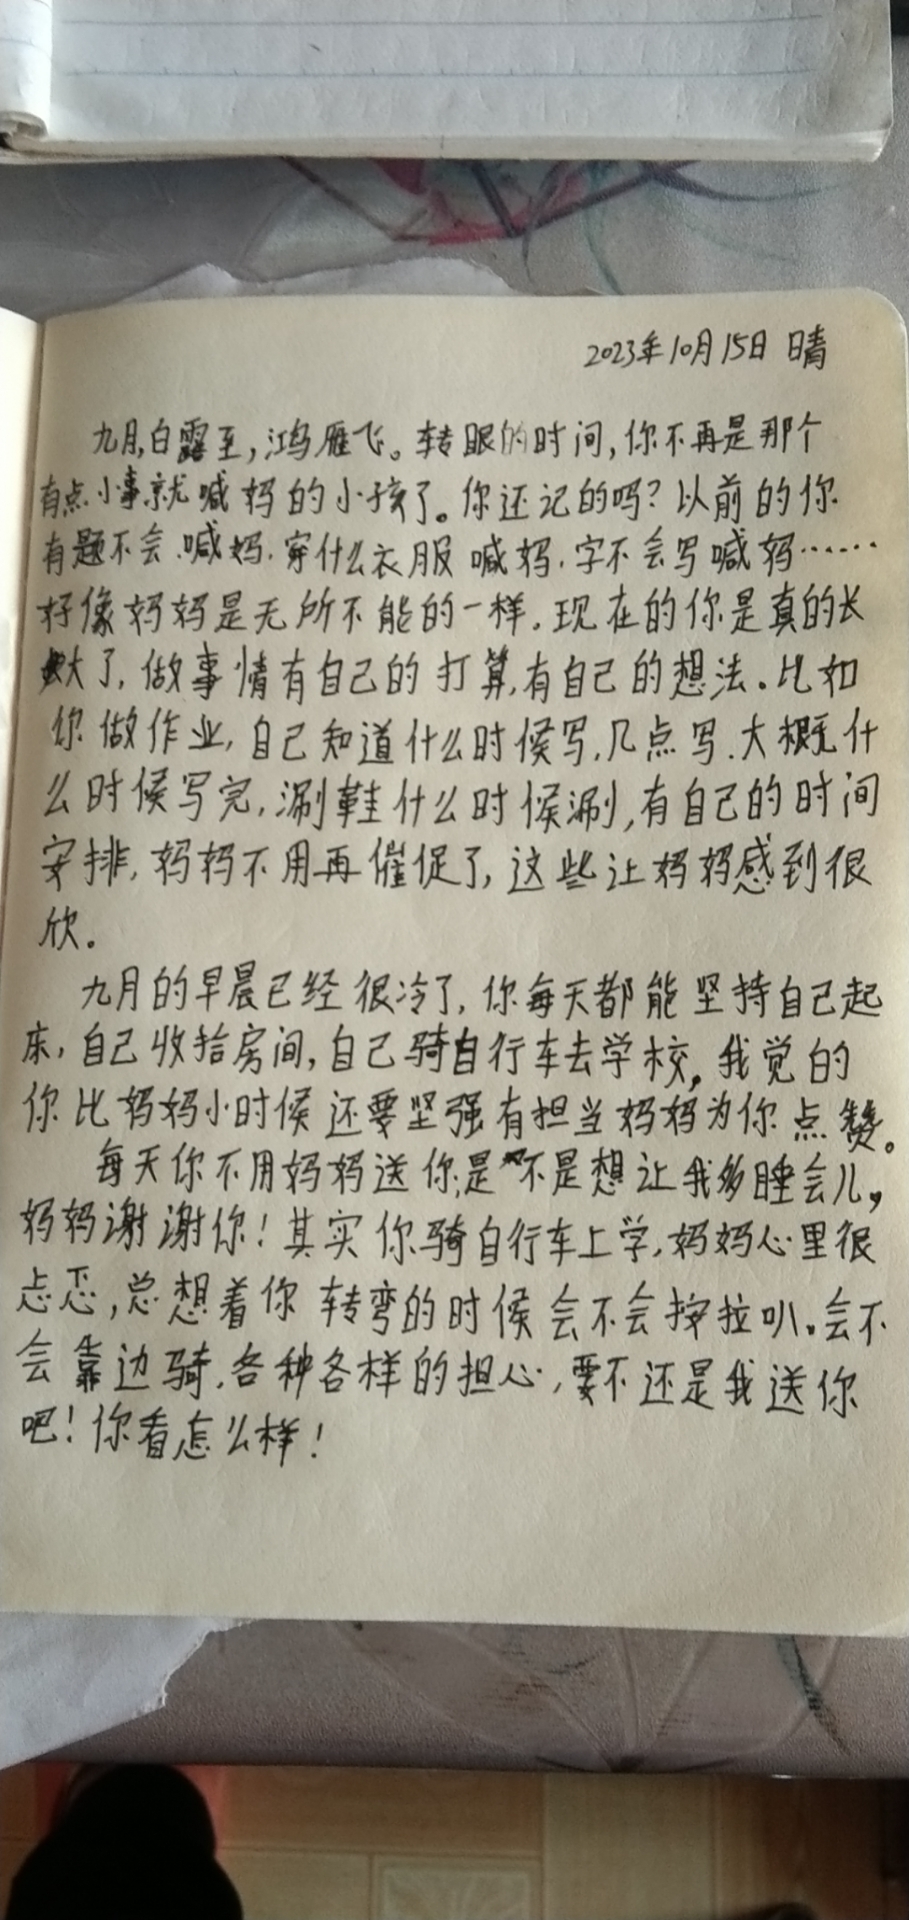 2023年10月15日 晴
九月,白露至,鸿雁飞。转眼的时间,你不再是那个
有点小事就喊妈的小孩了。你还记的吗?以前的你
有题不会.喊妈.穿什么衣服喊妈.字不会写喊妈……
好像妈妈是无所不能的一样.现在的你是真的长
大了.做事情有自己的打算,有自己的想法。比如
你做作业,自己知道什么时候写,几点写.大概什
么时候写完,涮鞋什么时候涮,有自己的时间
安排,妈妈不用再催促了,这些让妈妈感到很
欣。
九月的早晨已经很冷了,你每天都能坚持自己起
床,自己收拾房间,自己骑自行车去学校,我觉的
你比妈妈小时候还要坚强有担当妈妈为你点赞。
每天你不用妈妈送你,是不是想让我多睡会儿,
妈妈谢谢你!其实你骑自行车上学,妈妈心里很
忐忑,总想着你转弯的时候会不会按拉叭。会不
会靠边骑.各种各样的担心,要不还是我送你
吧!你看怎么样!